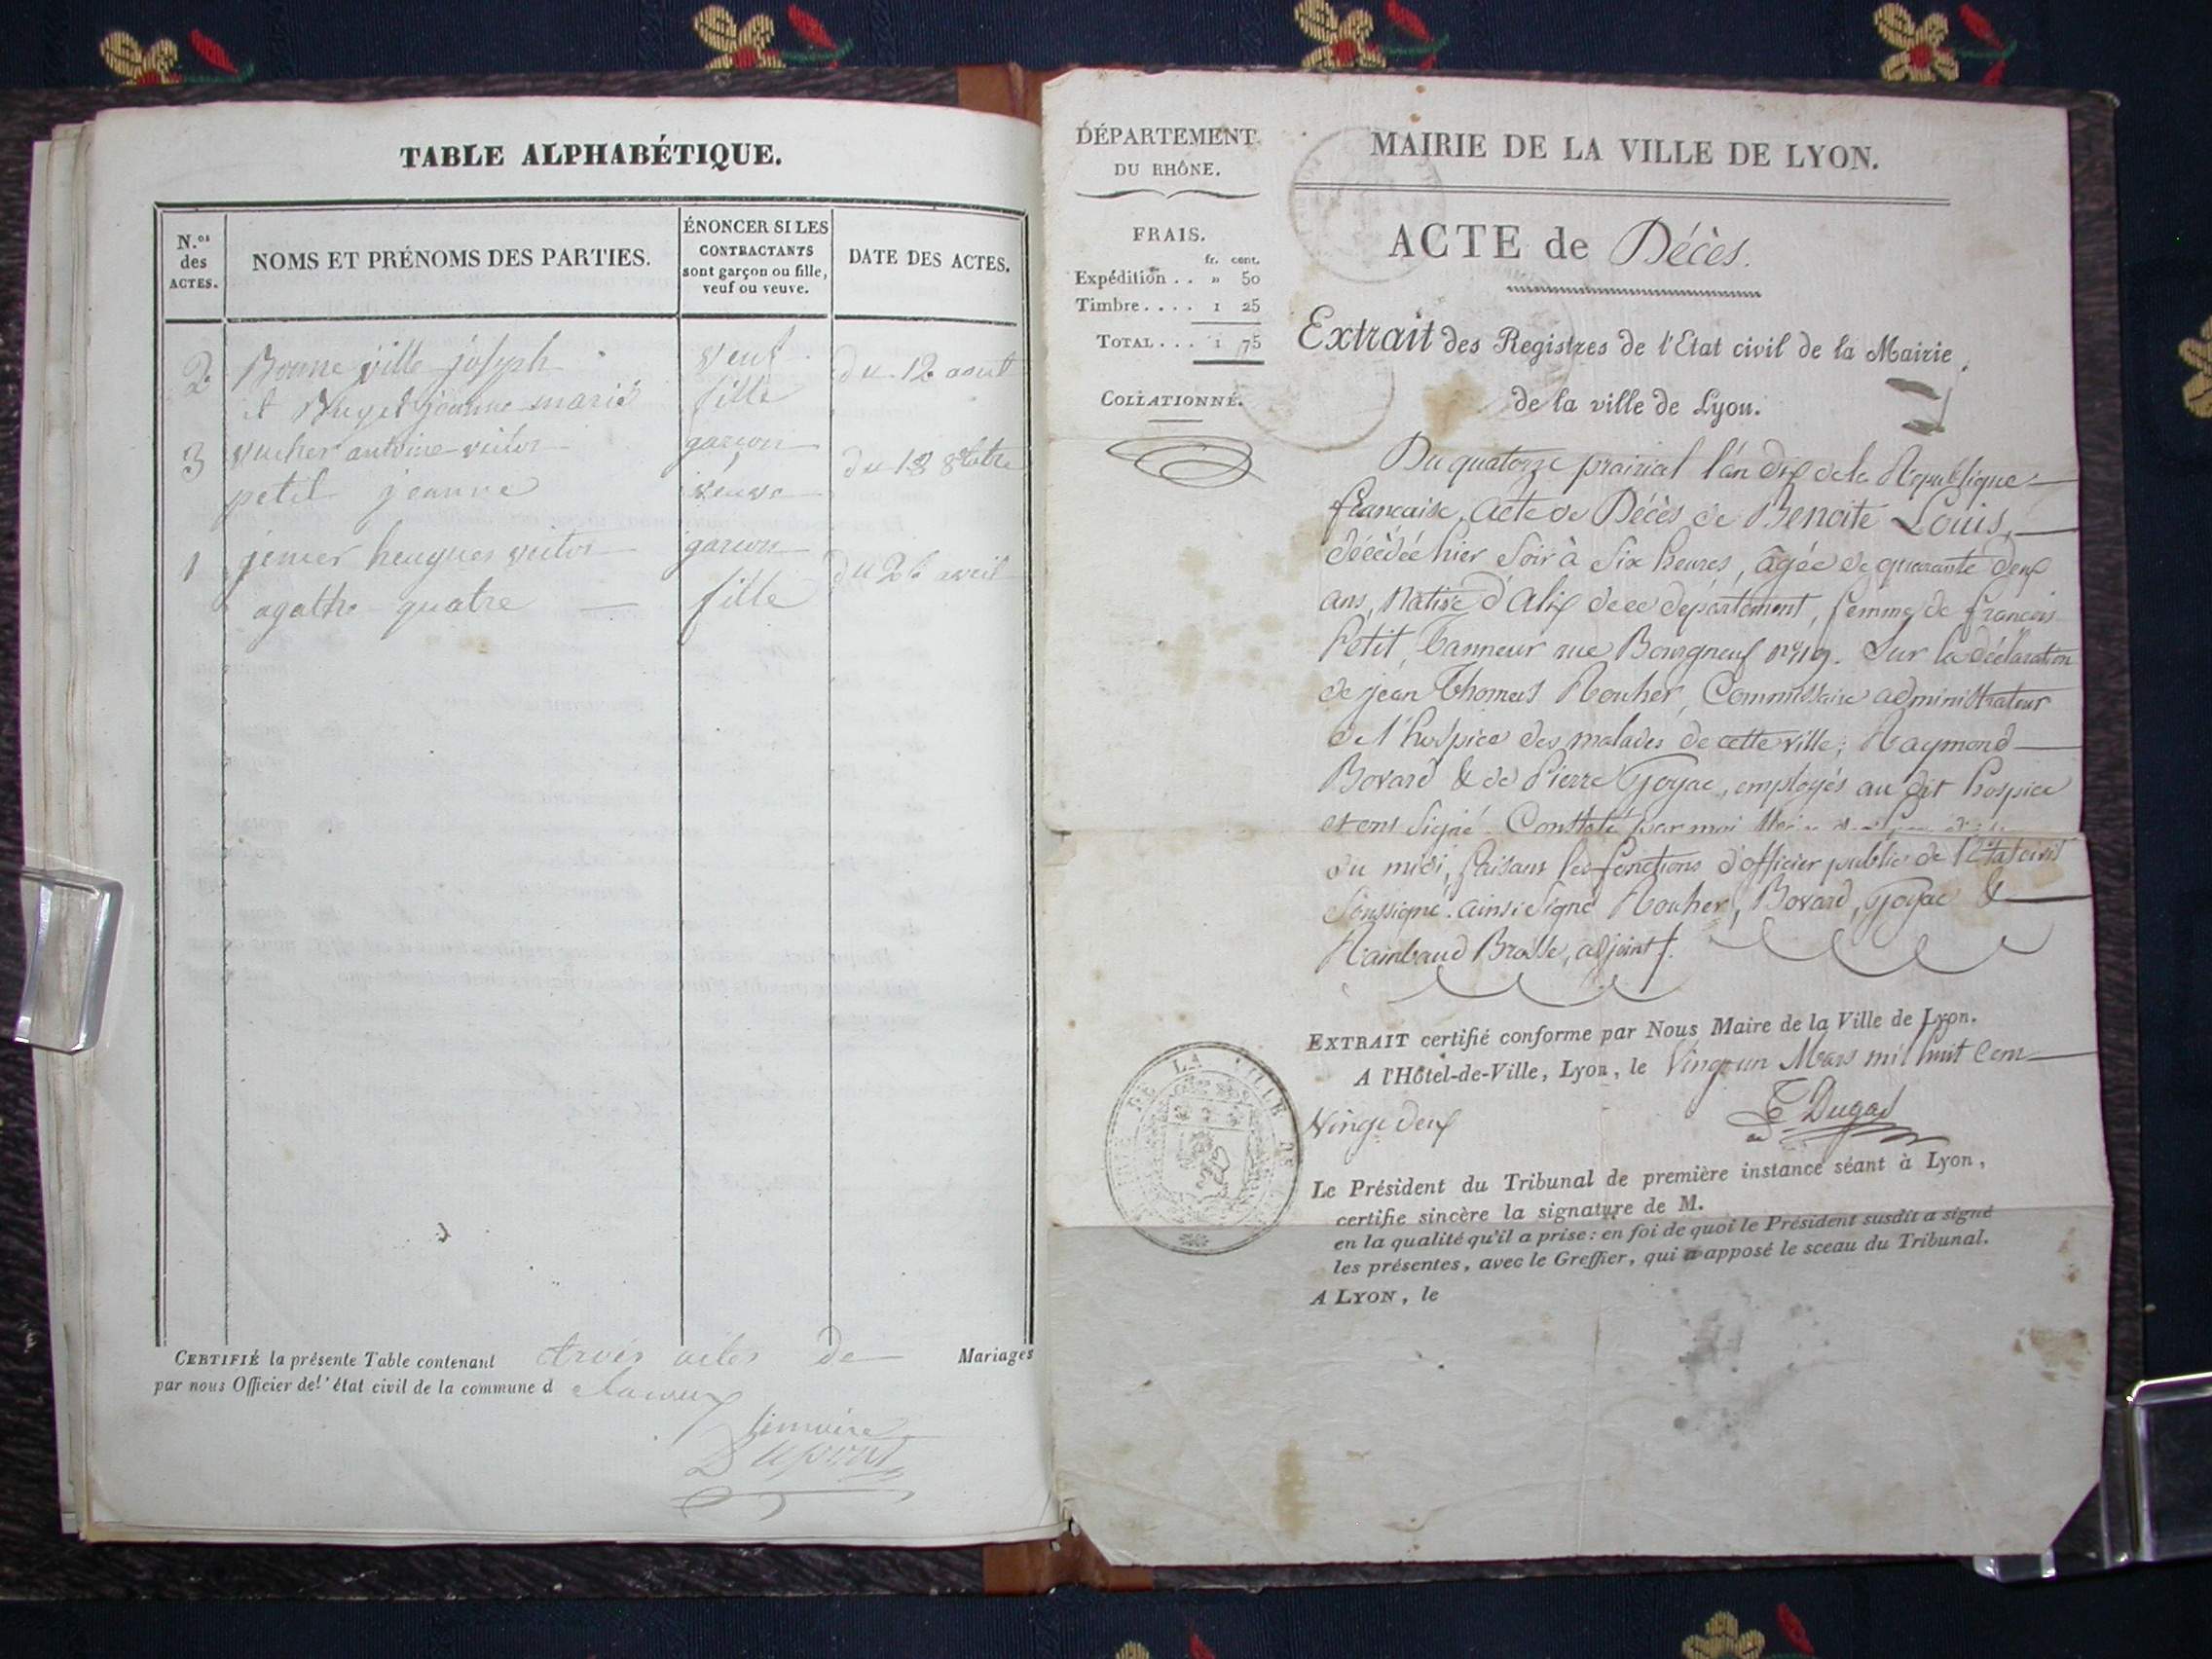 TABLE ALPHABÉTIQUE.
N.os des ACTES.
NOMS ET PRÉNOMS DES PARTIES.
ÉNONCER SI LES CONTRACTANTS sont garçon ou fille, veuf ou veuve.
DATE DES ACTES.
2 Bonne ville joseph veuf du 12 aout
et jeanne marie fille
3 vucher antoine victor garçon du 18 8bre
petit jeanne veuve
1 heugues victor garçon du avril
agathe quatre fille
CERTIFIÉ la présente Table contenant trois actes de Mariages
par nous Officier de l'état civil de la commune d
Dupont
DÉPARTEMENT
DU RHÔNE.
FRAIS.
fr. cent.
Expédition . . » 50
Timbre . . . . 1 25
TOTAL . . . 1 75
COLLATIONNÉ.
MAIRIE DE LA VILLE DE LYON.
ACTE de Décès.
Extrait des Registres de l'Etat civil de la Mairie
de la ville de Lyon.
Du quatorze prairial l'an dix de la Republique
francaise, acte de Décès de Benoite Louis,
décédée hier soir à six heures, agée de quarante deux
ans, Native d'Alix de ce departement, femme de francois
Petit, tanneur rue Bourgneuf n° 119. Sur la déclaration
de jean Thomas Rouher, Commissaire administrateur
de l'hospice des malades de cette ville; Raymond
Bovard & de Pierre Goyac, employés au dit hospice
et ont signé. Constaté par moi
du midi, faisant les fonctions d'officier public de l'Etat civil
soussigné. ainsi signé Rouher, Bovard, Goyac &
Rambaud Brosse, adjoint.
EXTRAIT certifié conforme par Nous Maire de la Ville de Lyon.
A l'Hôtel-de-Ville, Lyon, le Vingt un Mars mil huit Cent
Vingt deux
Dugas
Le Président du Tribunal de première instance séant à Lyon,
certifie sincère la signature de M.
en la qualité qu'il a prise : en foi de quoi le Président susdit a signé
les présentes, avec le Greffier, qui a apposé le sceau du Tribunal.
A LYON, le
DE LA VILLE DE